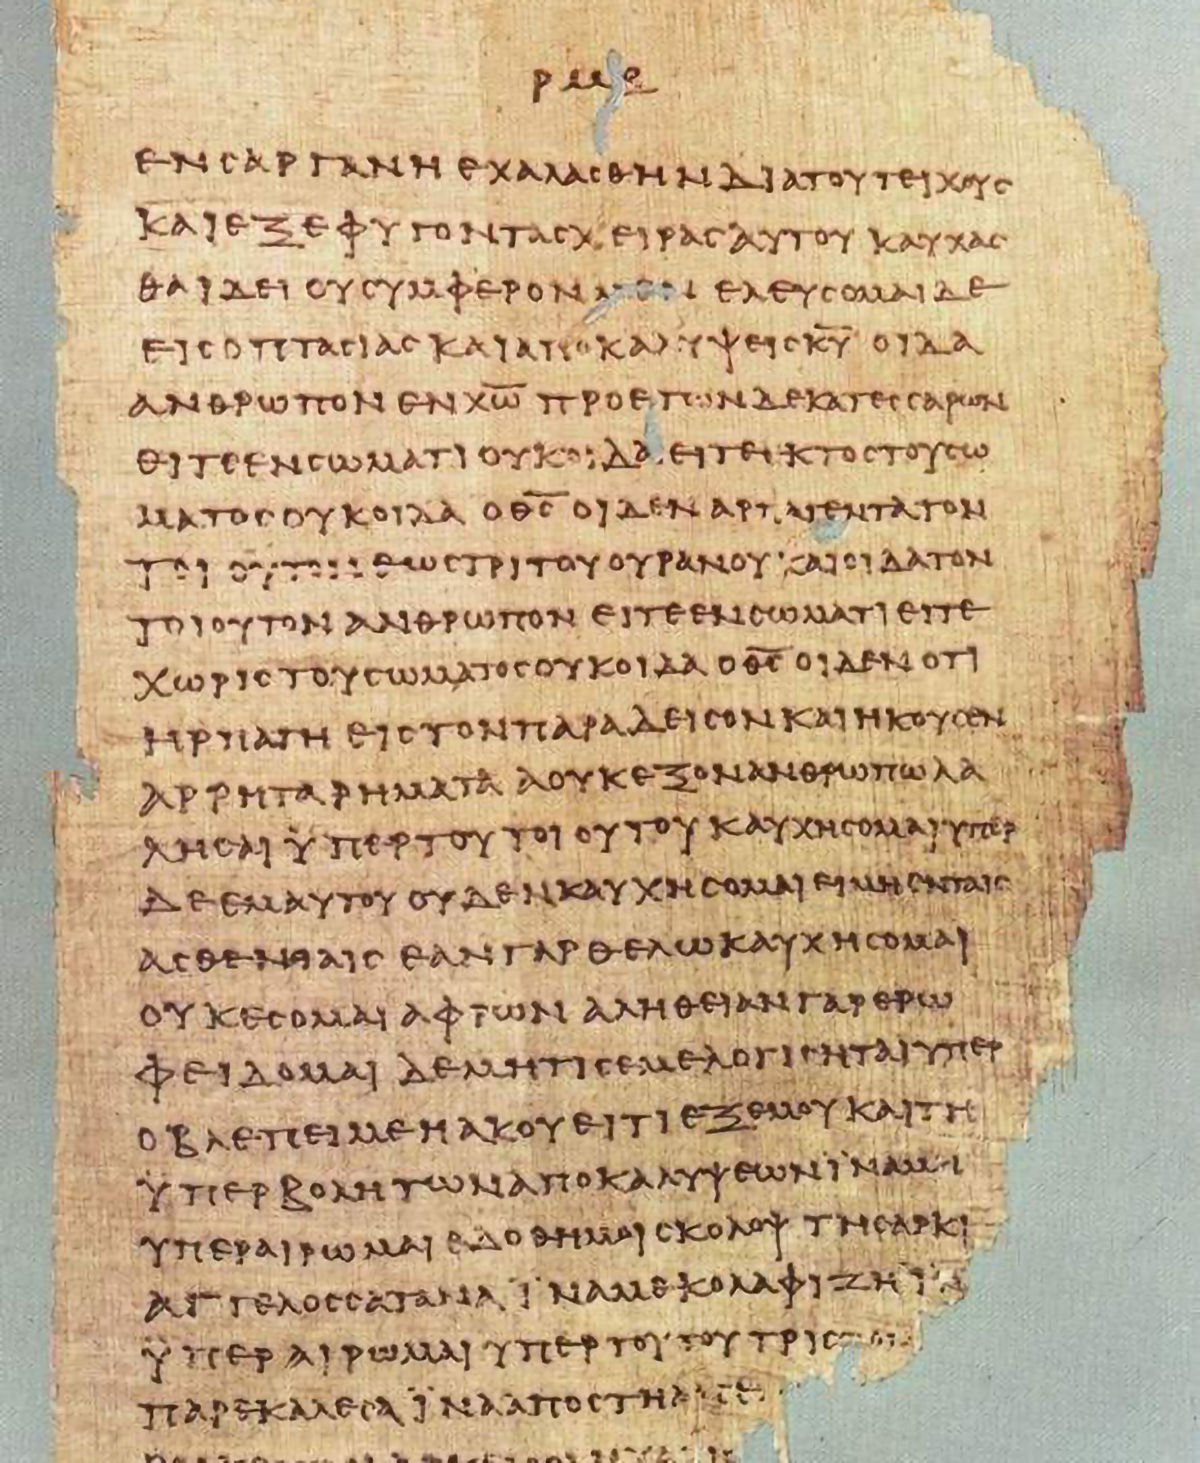 ρμε
ΕΝ ϹΑΡΓΑΝΗ ΕΧΑΛΑϹΘΗΝ ΔΙΑ ΤΟΥ ΤΕΙΧΟΥϹ
ΚΑΙ ΕΞΕΦΥΓΟΝ ΤΑϹ ΧΕΙΡΑϹ ΑΥΤΟΥ ΚΑΥΧΑϹ
ΘΑΙ ΔΕΙ ΟΥ ϹΥΜΦΕΡΟΝ ΕΛΕΥϹΟΜΑΙ ΔΕ
ΕΙϹ ΟΠΤΑϹΙΑϹ ΚΑΙ ΑΠΟΚΑΛΥΨΕΙϹ Κ̅Υ̅ ΟΙΔΑ
ΑΝΘΡΩΠΟΝ ΕΝ Χ̅Ω̅ ΠΡΟ ΕΤΩΝ ΔΕΚΑΤΕϹϹΑΡΩΝ
ΕΙΤΕ ΕΝ ϹΩΜΑΤΙ ΟΥΚ ΟΙΔΑ ΕΙΤΕ ΕΚΤΟϹ ΤΟΥ ϹΩ
ΜΑΤΟϹ ΟΥΚ ΟΙΔΑ Ο Θ̅Ϲ̅ ΟΙΔΕΝ ΑΡΠΑΓΕΝΤΑ ΤΟΝ
ΤΟΙΟΥΤΟΝ ΕΩϹ ΤΡΙΤΟΥ ΟΥΡΑΝΟΥ ΚΑΙ ΟΙΔΑ ΤΟΝ
ΤΟΙΟΥΤΟΝ ΑΝΘΡΩΠΟΝ ΕΙΤΕ ΕΝ ϹΩΜΑΤΙ ΕΙΤΕ
ΧΩΡΙϹ ΤΟΥ ϹΩΜΑΤΟϹ ΟΥΚ ΟΙΔΑ Ο Θ̅Ϲ̅ ΟΙΔΕΝ ΟΤΙ
ΗΡΠΑΓΗ ΕΙϹ ΤΟΝ ΠΑΡΑΔΕΙϹΟΝ ΚΑΙ ΗΚΟΥϹΕΝ
ΑΡΡΗΤΑ ΡΗΜΑΤΑ Α ΟΥΚ ΕΞΟΝ ΑΝΘΡΩΠΩ ΛΑ
ΛΗϹΑΙ ΫΠΕΡ ΤΟΥ ΤΟΙΟΥΤΟΥ ΚΑΥΧΗϹΟΜΑΙ ΥΠΕΡ
ΔΕ ΕΜΑΥΤΟΥ ΟΥΔΕΝ ΚΑΥΧΗϹΟΜΑΙ ΕΙ ΜΗ ΕΝ ΤΑΙϹ
ΑϹΘΕΝΕΙΑΙϹ ΕΑΝ ΓΑΡ ΘΕΛΩ ΚΑΥΧΗϹΟΜΑΙ
ΟΥΚ ΕϹΟΜΑΙ ΑΦΡΩΝ ΑΛΗΘΕΙΑΝ ΓΑΡ ΕΡΩ
ΦΕΙΔΟΜΑΙ ΔΕ ΜΗ ΤΙϹ ΕΜΕ ΛΟΓΙϹΗΤΑΙ ΥΠΕΡ
Ο ΒΛΕΠΕΙ ΜΕ Η ΑΚΟΥΕΙ ΤΙ ΕΞ ΕΜΟΥ ΚΑΙ ΤΗ
ΫΠΕΡΒΟΛΗ ΤΩΝ ΑΠΟΚΑΛΥΨΕΩΝ ΪΝΑ ΜΗ
ΥΠΕΡΑΙΡΩΜΑΙ ΕΔΟΘΗ ΜΟΙ ϹΚΟΛΟΨ ΤΗ ϹΑΡΚΙ
ΑΓΓΕΛΟϹ ϹΑΤΑΝΑ ΪΝΑ ΜΕ ΚΟΛΑΦΙΖΗ
ΫΠΕΡΑΙΡΩΜΑΙ ΥΠΕΡ ΤΟΥΤΟΥ ΤΡΙϹ
ΠΑΡΕΚΑΛΕϹΑ ΪΝΑ ΑΠΟϹΤΗ